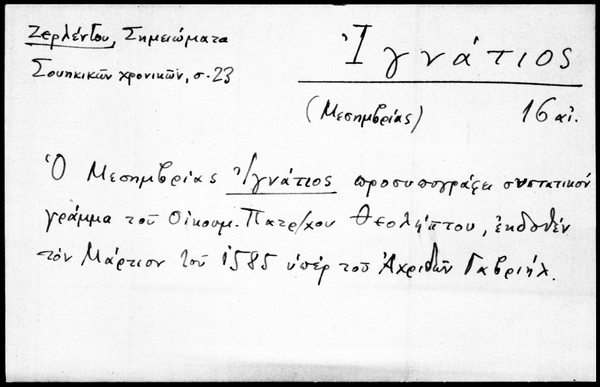 Ζερλέντου, Σημειώματα
Σουηκικῶν χρονικῶν, σ. 23
Ἰγνάτιος
(Μεσημβρίας) 16 αἰ.
Ὁ Μεσημβρίας Ἰγνάτιος προσυπογράφει συστατικόν
γράμμα τοῦ Οἰκουμ. Πατρ/χου Θεολήπτου, ἐκδοθέν
τὸν Μάρτιον τοῦ 1585 ὑπέρ τοῦ Ἀχριδῶν Γαβριήλ.